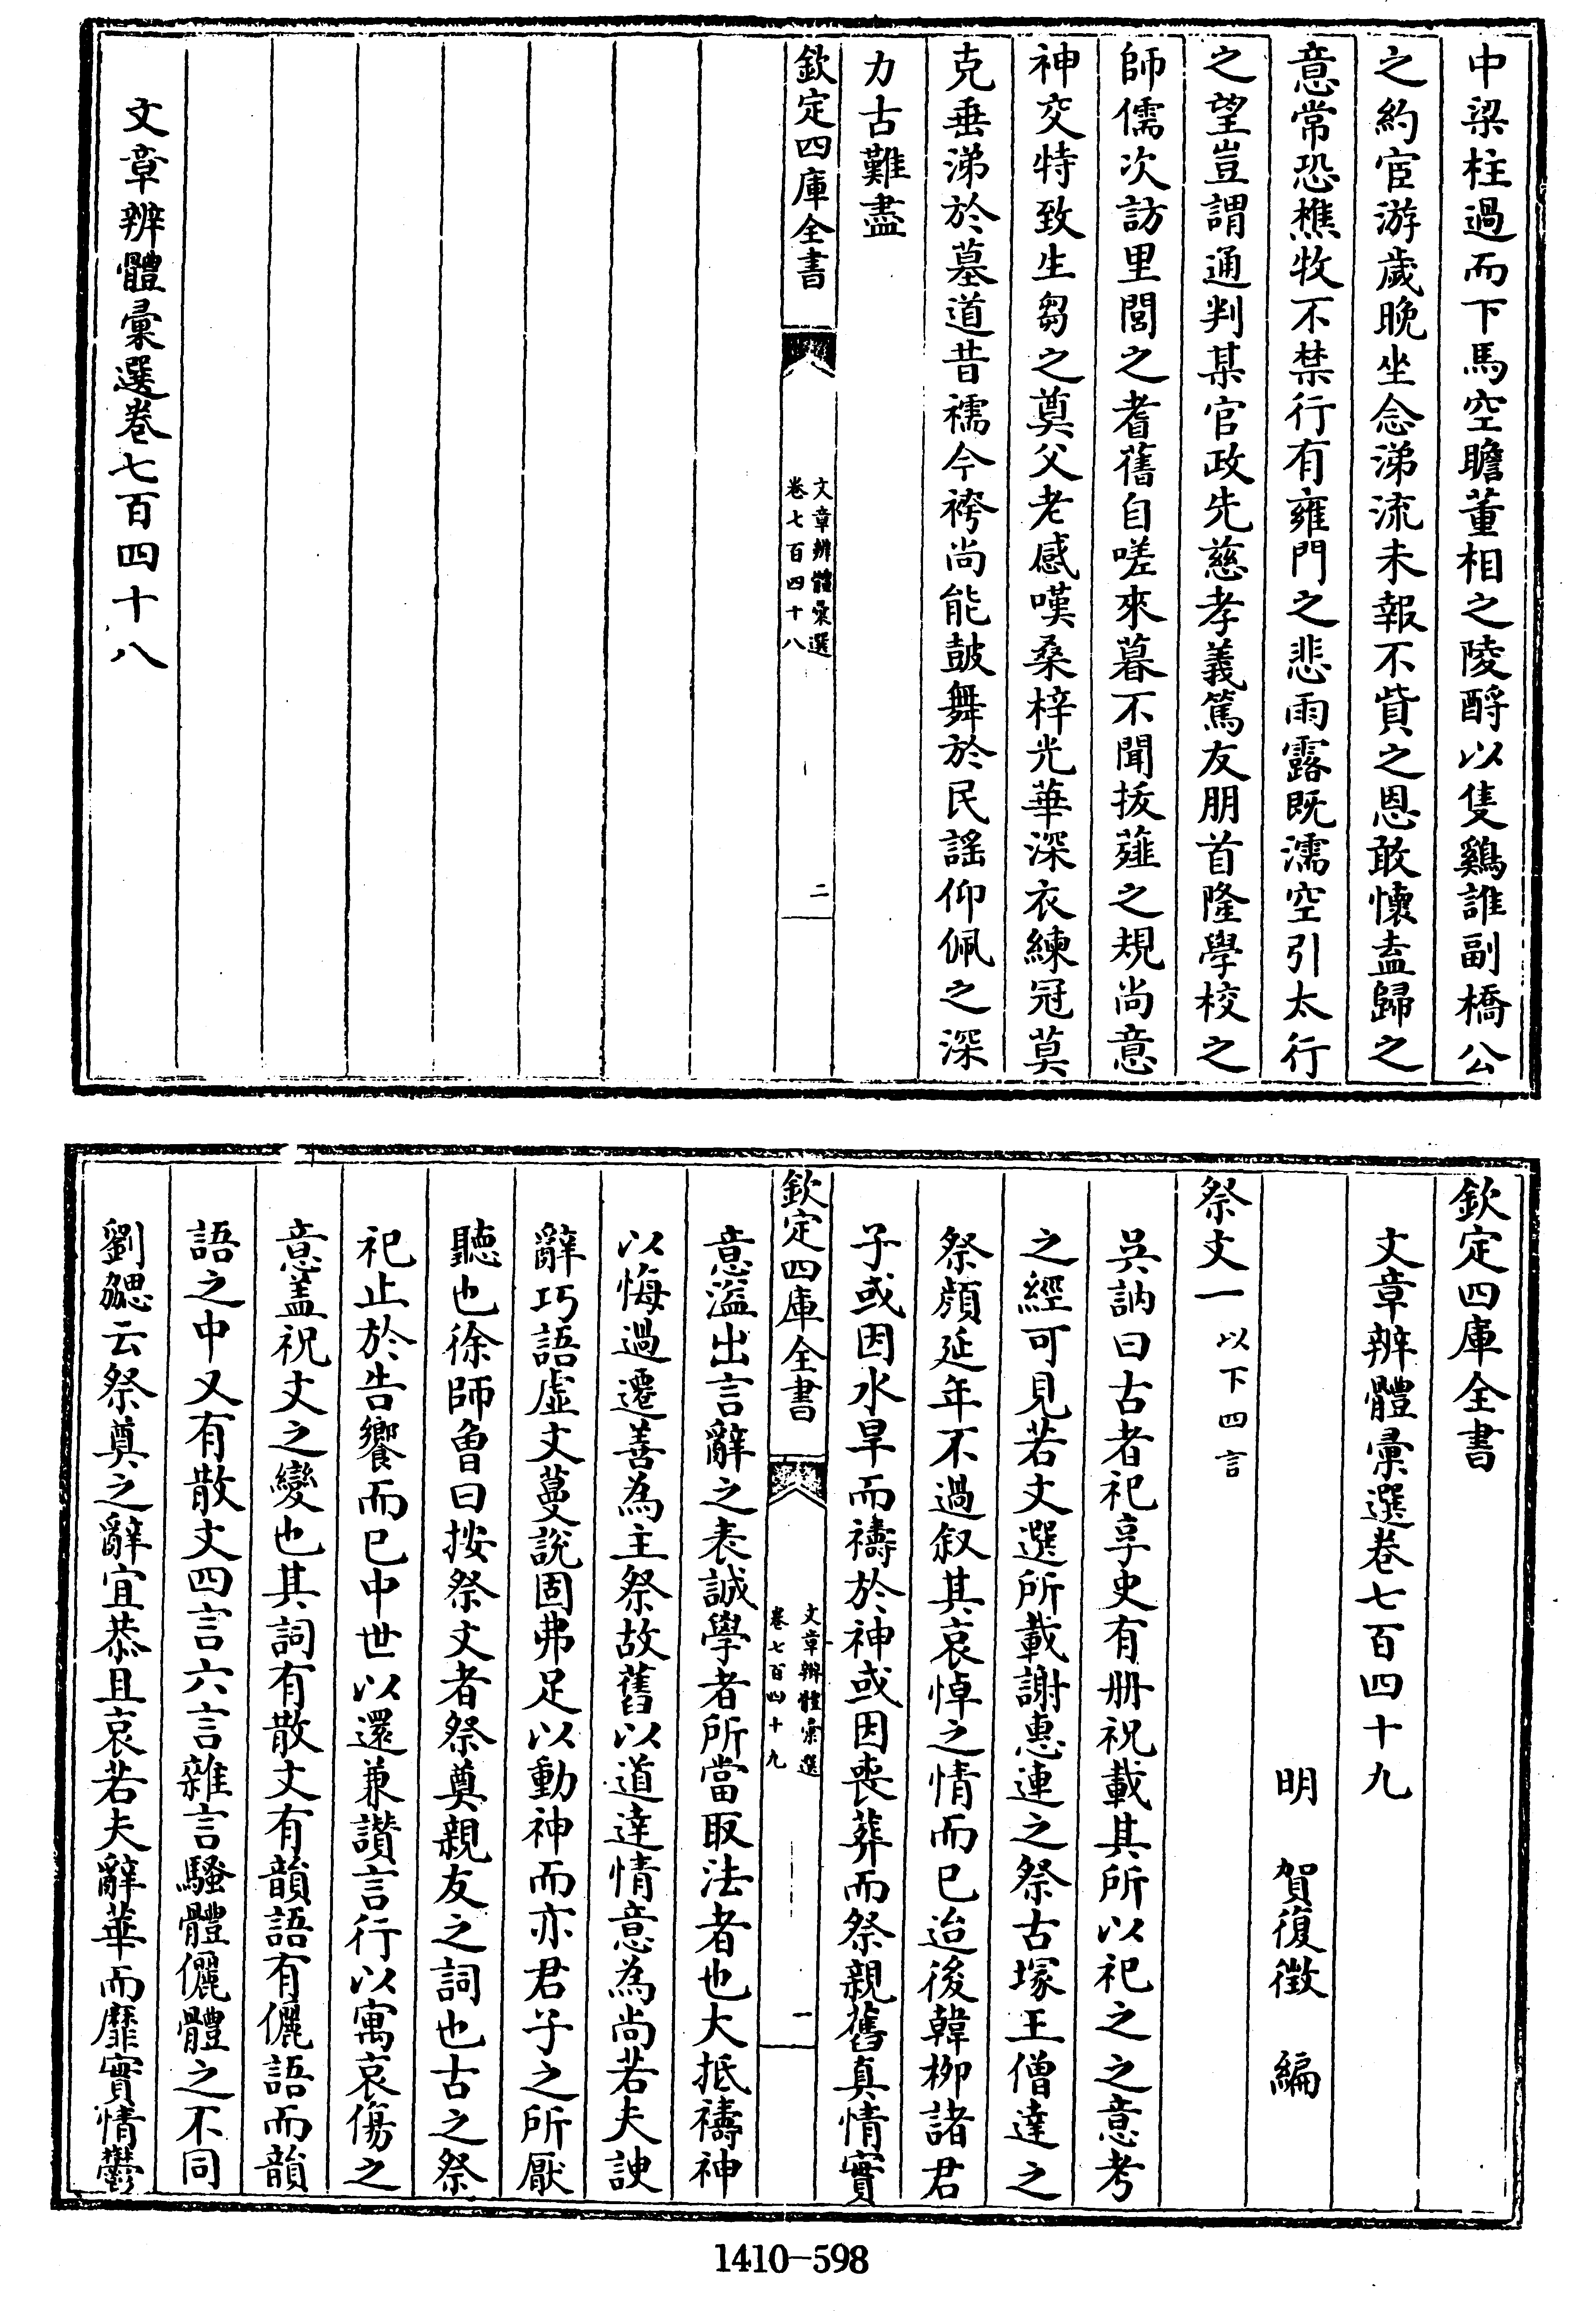 中梁柱過而下馬空瞻董相之陵酹以隻鷄誰副橋公
之約宦游歲晚坐念涕流未報不貲之恩敢懷盍歸之
意常恐樵牧不禁行有雍門之悲雨露既濡空引太行
之望豈謂通判某官政先慈孝義篤友朋首隆學校之
師儒次訪里閭之耆舊自嗟來暮不聞拔薤之規尚意
神交特致生芻之奠父老感嘆桑梓光華深衣練冠莫
克垂涕於墓道昔襦今袴尚能鼓舞於民謡仰佩之深
力古難盡
欽定四庫全書
文章辨體彙選
卷七百四十八
二
文章辨體彙選卷七百四十八
欽定四庫全書
文章辨體彙選卷七百四十九
明 賀復徵 編
祭文一 以下四言
吳訥曰古者祀享史有册祝載其所以祀之之意考
之經可見若文選所載謝惠連之祭古塚王僧達之
祭顔延年不過叙其哀悼之情而已迨後韓柳諸君
子或因水旱而禱於神或因喪葬而祭親舊真情實
欽定四庫全書
文章辨體彙選
卷七百四十九
一
意溢出言辭之表誠學者所當取法者也大抵禱神
以悔過遷善為主祭故舊以道達情意為尚若夫諛
辭巧語虛文蔓說固弗足以動神而亦君子之所厭
聽也徐師曾曰按祭文者祭奠親友之詞也古之祭
祀止於告饗而已中世以還兼讚言行以寓哀傷之
意盖祝文之變也其詞有散文有韻語有儷語而韻
語之中又有散文四言六言雜言騷體儷體之不同
劉勰云祭奠之辭宜恭且哀若夫辭華而靡實情鬱
1410-598